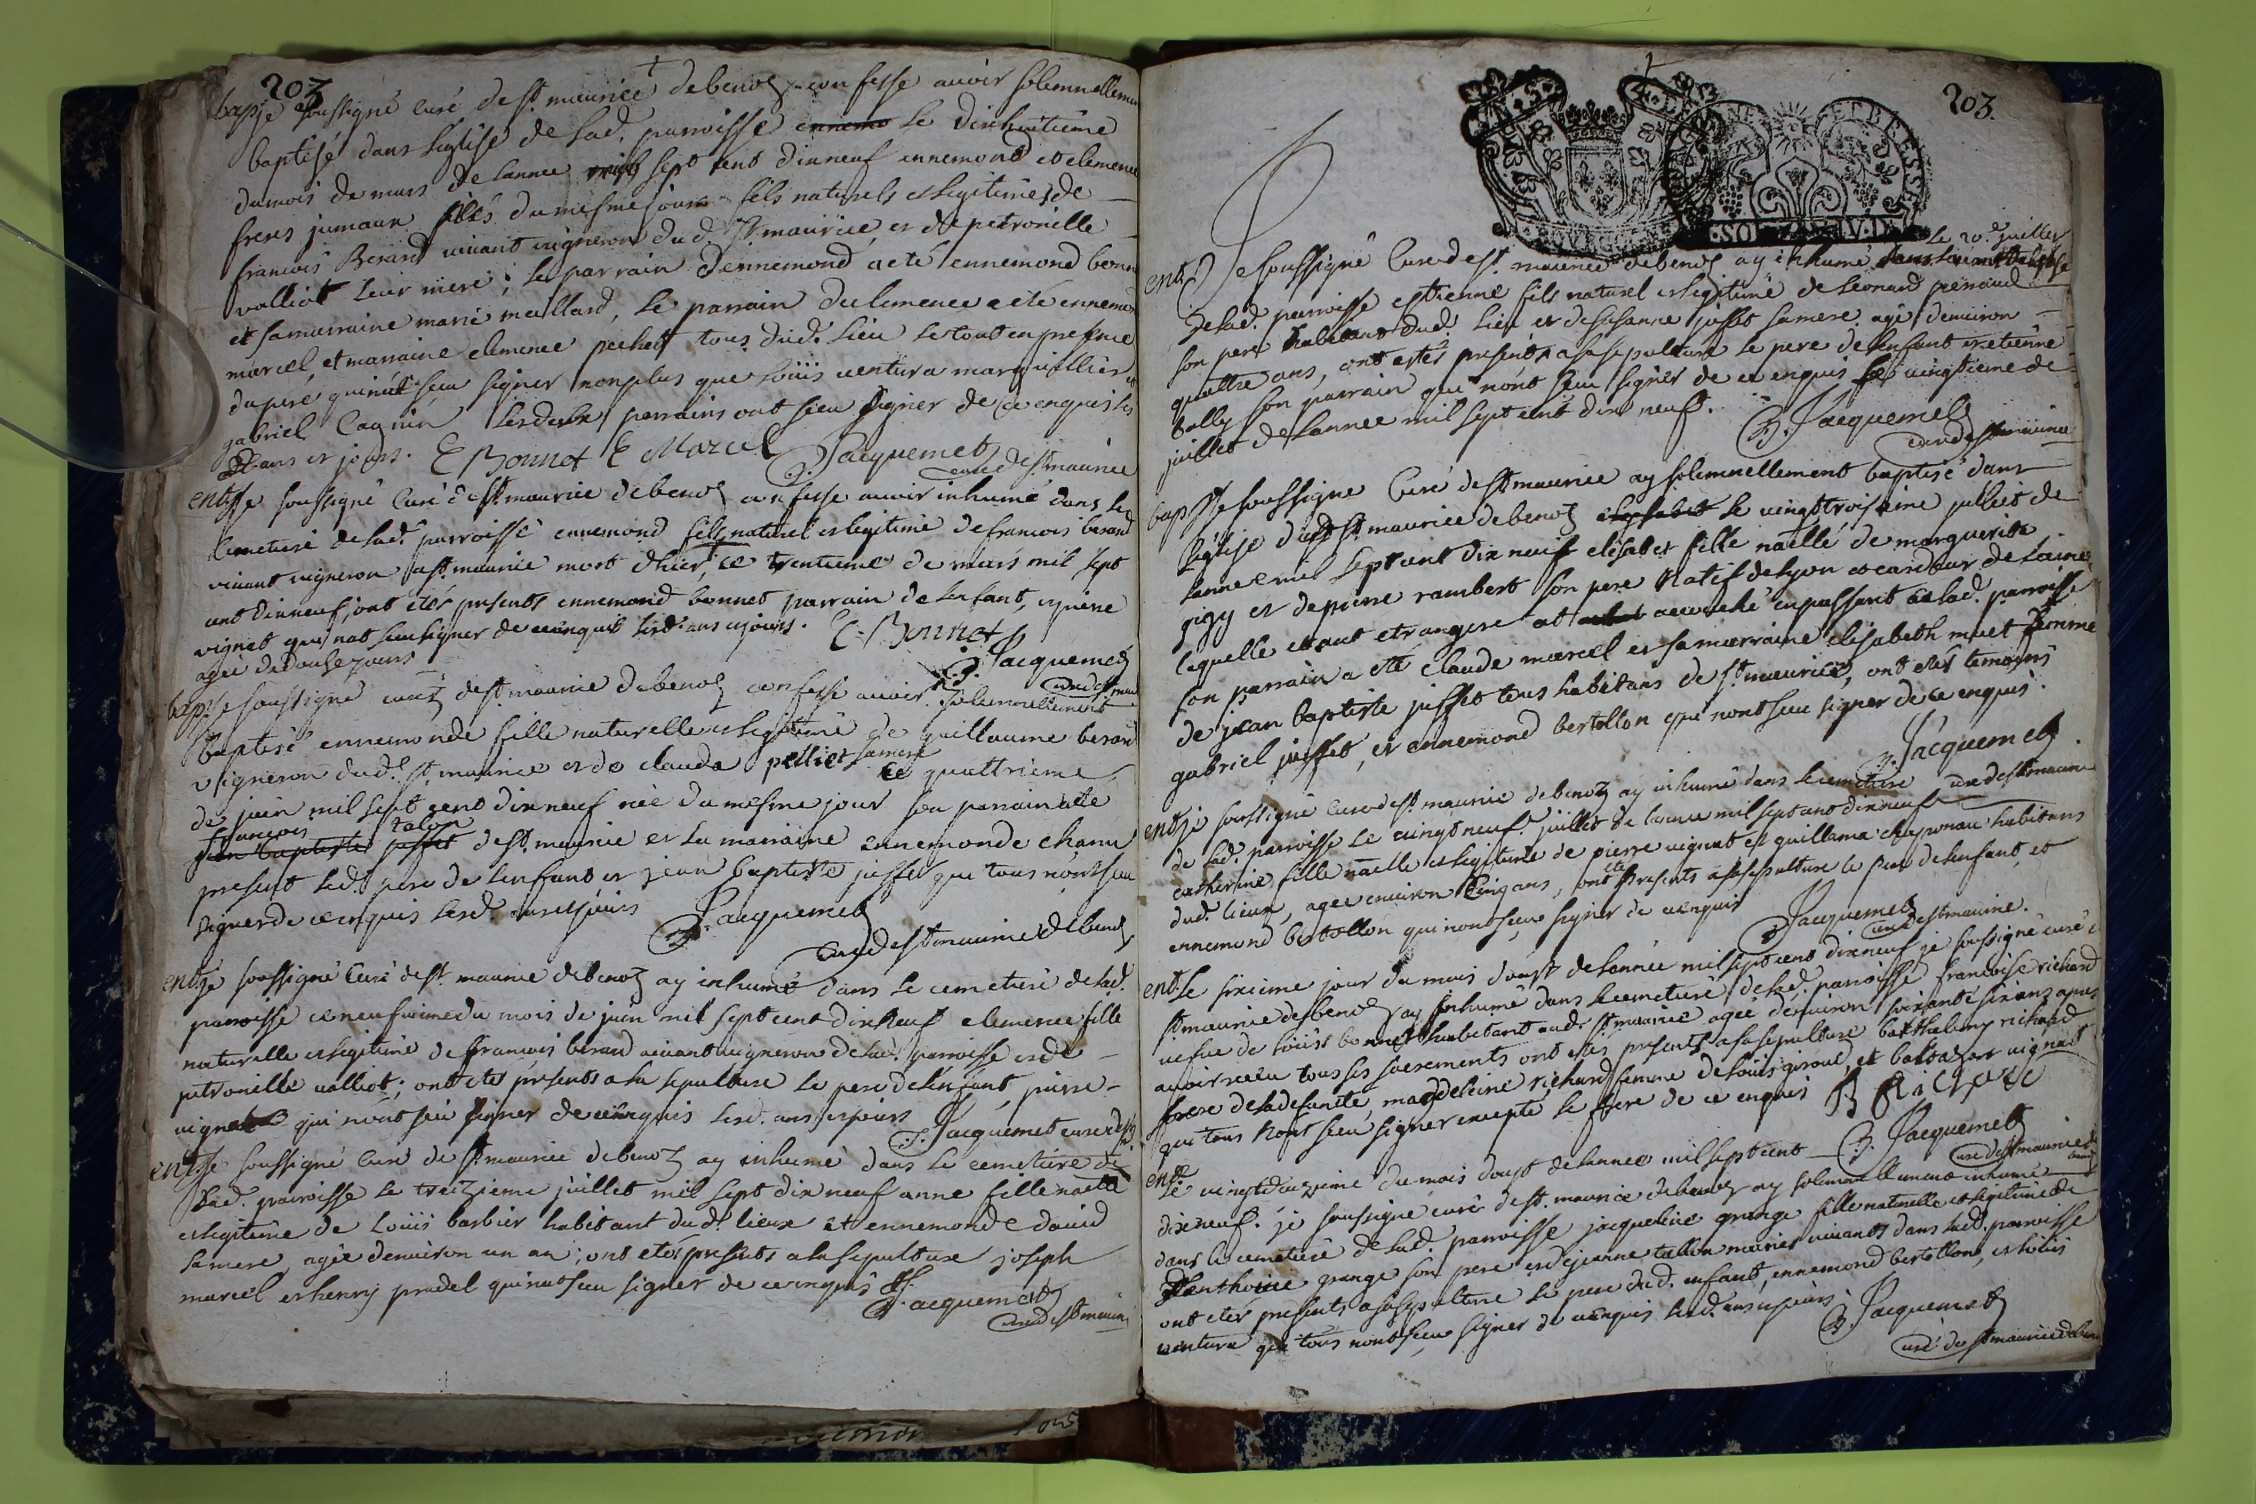 203
bapt je soussigné curé de st maurice debenot confesse avoir solemnellement
baptisé dans l'eglise de lad. parroisse le dixhuitième
du mois de mars de lannee mil sept cent dixneuf ennemond et clemence
freres jumaux nés du mesme jour fils naturels et legitimes de
francois Berard vivant vigneron dud. st maurice et de petronille
valliot leur mere; le parrain d'ennemond a eté ennemond bonnet
et sa marraine marie maillard, le parrain de clemence a eté ennemond
marcel, et marraine clemence pechet tous dud. lieu le tout en presence
du pere qui n'a sceu signer non plus que loüis ventura marguillier et
gabriel les deux parrains ont sceu signer de ce enquis les
d. ans et jours. E Bonnet E Marcel B. Jacquemet
curé de st maurice
ent. Je soussigné curé de st maurice debenot confesse avoir inhumé dans le
cimetiere de lad. parroisse ennemond fils naturel et legitime de francois berard
vivant vigneron a st. maurice mort d'hier, ce trentieme de mars mil sept
cent dixneuf, ont etés presents ennemond bonnet parrain de lenfant, et pierre
vignat qui n'at sceu signer de ce enquis lesd. ans et jours. E. Bonnet
agée de douse jours
B. Jacquemet
curé de st maurice
bapt. Je soussigné curé de st. maurice debenot confesse avoir solemnellement
baptisé ennemonde fille naturelle et legitime de guillaume berard
vigneron dud. st. maurice et de clauda pelliet sa mere ce quattrieme
de juin mil sept cent dixneuf née du mesme jour son parrain a eté
francois talon
jean baptiste juffet de st. maurice et sa marraine ennemonde chanu
present led. pere de lenfant et jean baptiste juffet qui tous n'ont sceu
signer de ce enquis lesd. ans et jours B. Jacquemet
curé de st maurice de benot
ent. je soussigné curé de st. maurice debenot ay inhumé dans le cemetiere de lad.
parroisse ce neufvieme du mois de juin mil sept cent dix neuf clemence fille
naturelle et legitime de francois berard vivant vigneron de lad. parroisse et de
petronille valliot; ont etés presents a la sepulture le pere de l'enfant, pierre
vignat qui n'ont sceu signer de ce enquis lesd. ans et jours
B. Jacquemet curé de st
ent. Je soussigné curé de st maurice debenot ay inhumé dans le cemetiere de
lad. parroisse le treizieme juillet mil sept dix neuf anne fille naelle
et legitime de Loüis barbier habitant dud. lieux et ennemonde david
sa mere, agée denviron un an; ont etés presents a la sepulture joseph
marcel et henry pradel qui n'ont sceu signer de ce enquis
B. Jacquemet
curé de st maurice
203.
le 20e juillet
ent. Je soussigné curé de st. maurice debenot ay inhumé
de lad. parroisse estienne fils naturel et legitime de Leonard penaud
son pere habitant dud. lieu et de susanne juffet sa mere agé denviron
quattre ans, ont estés presents a sa sepulture le pere de lenfant et etienne
bolly son parrain qui n'ont sceu signer de ce enquis ce vingtieme de
juillet de lannee mil sept cent dix neuf.
B. Jacquemet
curé de st maurice
bapt. Je soussigné curé de st maurice ay solemnellement baptisé dans
l'eglise dud. st. maurice debenot le vingt troisieme juillet de
lannee mil sept cent dix neuf elisabet fille naelle de marguerite
gigy et de pierre rambert son pere natif de lyon et cardeur de laine,
laquelle etant etrangere at accouché en passant en lad. parroisse
son parrain a eté claude marcel et sa marraine elisabeth muet femme
de jean baptiste juffet tous habitans de st maurice, ont etés temoins
gabriel juffet, et ennemond bertollon qui n'ont sceu signer de ce enquis.
B. Jacquemet
curé de st maurice
ent. je soussigné curé de st. maurice debenot ay inhumé dans le cemetiere
de lad. parroisse le vingt neuf. juillet de lannee mil sept cent dixneuf
catherine fille naelle et legitime de pierre vignat et guillama chaponau habitans
dud. lieux, agee environ cinq ans, ont eté presents a sa sepulture le pere de lenfant, et
ennemond bertollon qui n'ont sceu signer de ce enquis B. Jacquemet
curé de st maurice.
ent. Le sixieme jour du mois d'oust de lannée mil sept cent dixneuf je soussigné curé de
st maurice debenot ay inhumé dans le cemetiere de lad. parroisse francoise richard
vefve de loüis bonnet habitant aud. st maurice agée denviron soixante six ans apres
avoir receu tous ses sacrements ont etés presents a sa sepulture barthelemy richard
frere de la defuncte, magdeleine richard femme de loüis giroud, et baltazar vignat
qui tous n'ont sceu signer excepté le frere de ce enquis B Richard
B. Jacquemet
curé de st maurice de benot
ent. Le vingt du mois d'oust de lannee mil sept cent
dixneuf. je soussigné curé de st. maurice debenot ay solemnellement inhumé
dans le cemetiere de lad. parroisse jacqueline grange fille naturelle et legitime de
d'anthoine grange son pere et de jeanne tallon mariés vivants dans lad. parroisse
ont etés presents a sa sepulture le pere dud. enfant, ennemond bertollon, et loüis
ventura qui tous n'ont sceu signer de ce enquis lesd. ans et jours.
B. Jacquemet
curé de st maurice debenot